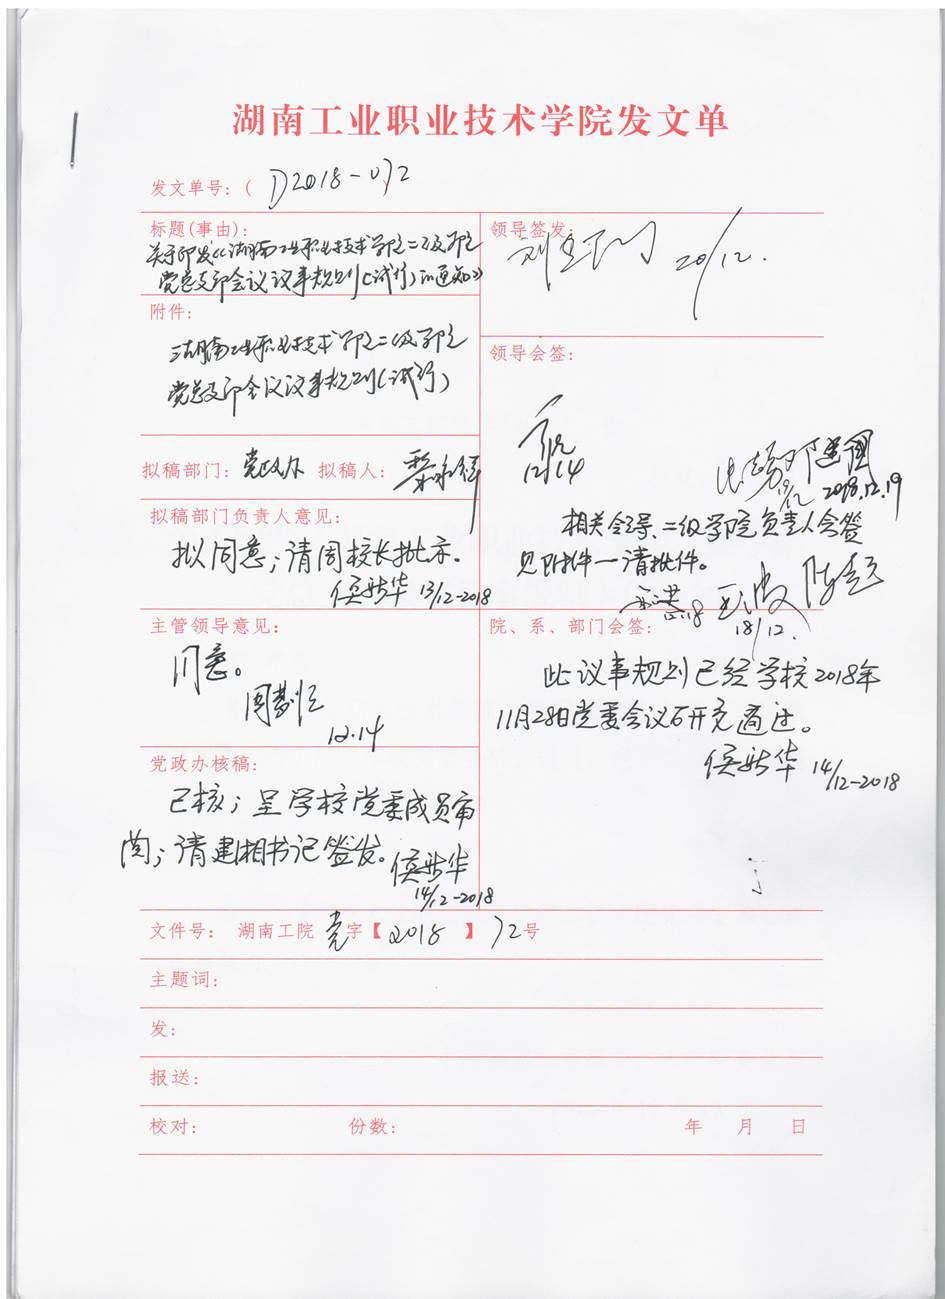 湖南工业职业技术学院发文单
发文单号：（D2018-072
标题(事由)：
关于印发《湖南工业职业技术学院二级学院
党总支部会议议事规则（试行）的通知》
附件：
湖南工业职业技术学院二级学院
党总支部会议议事规则（试行）
拟稿部门：党政办 拟稿人：
拟稿部门负责人意见：
拟同意；请周校长批示．
侯新华 13/12-2018
主管领导意见：
同意。
12.14
党政办核稿：
已核；呈学校党委成员审
阅；请建湘书记签发。
侯新华
14/12-2018
领导签发：
20/12.
领导会签：
12.14
19/12 2018.12.19
相关领导、二级学院负责人会签
见附件一请批件。
12.18
18/12.
院、系、部门会签：
此议事规则已经学校2018年
11月28日党委会议研究通过。
侯新华 14/12-2018
文件号： 湖南工院 党 字【2018】72号
主题词：
发：
报送：
校对： 份数： 年 月 日